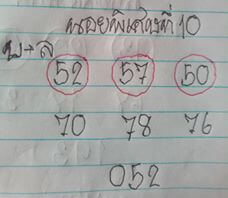 หวยพิเศษที่ 10
บ+ล
52 57 50
70 78 76
052